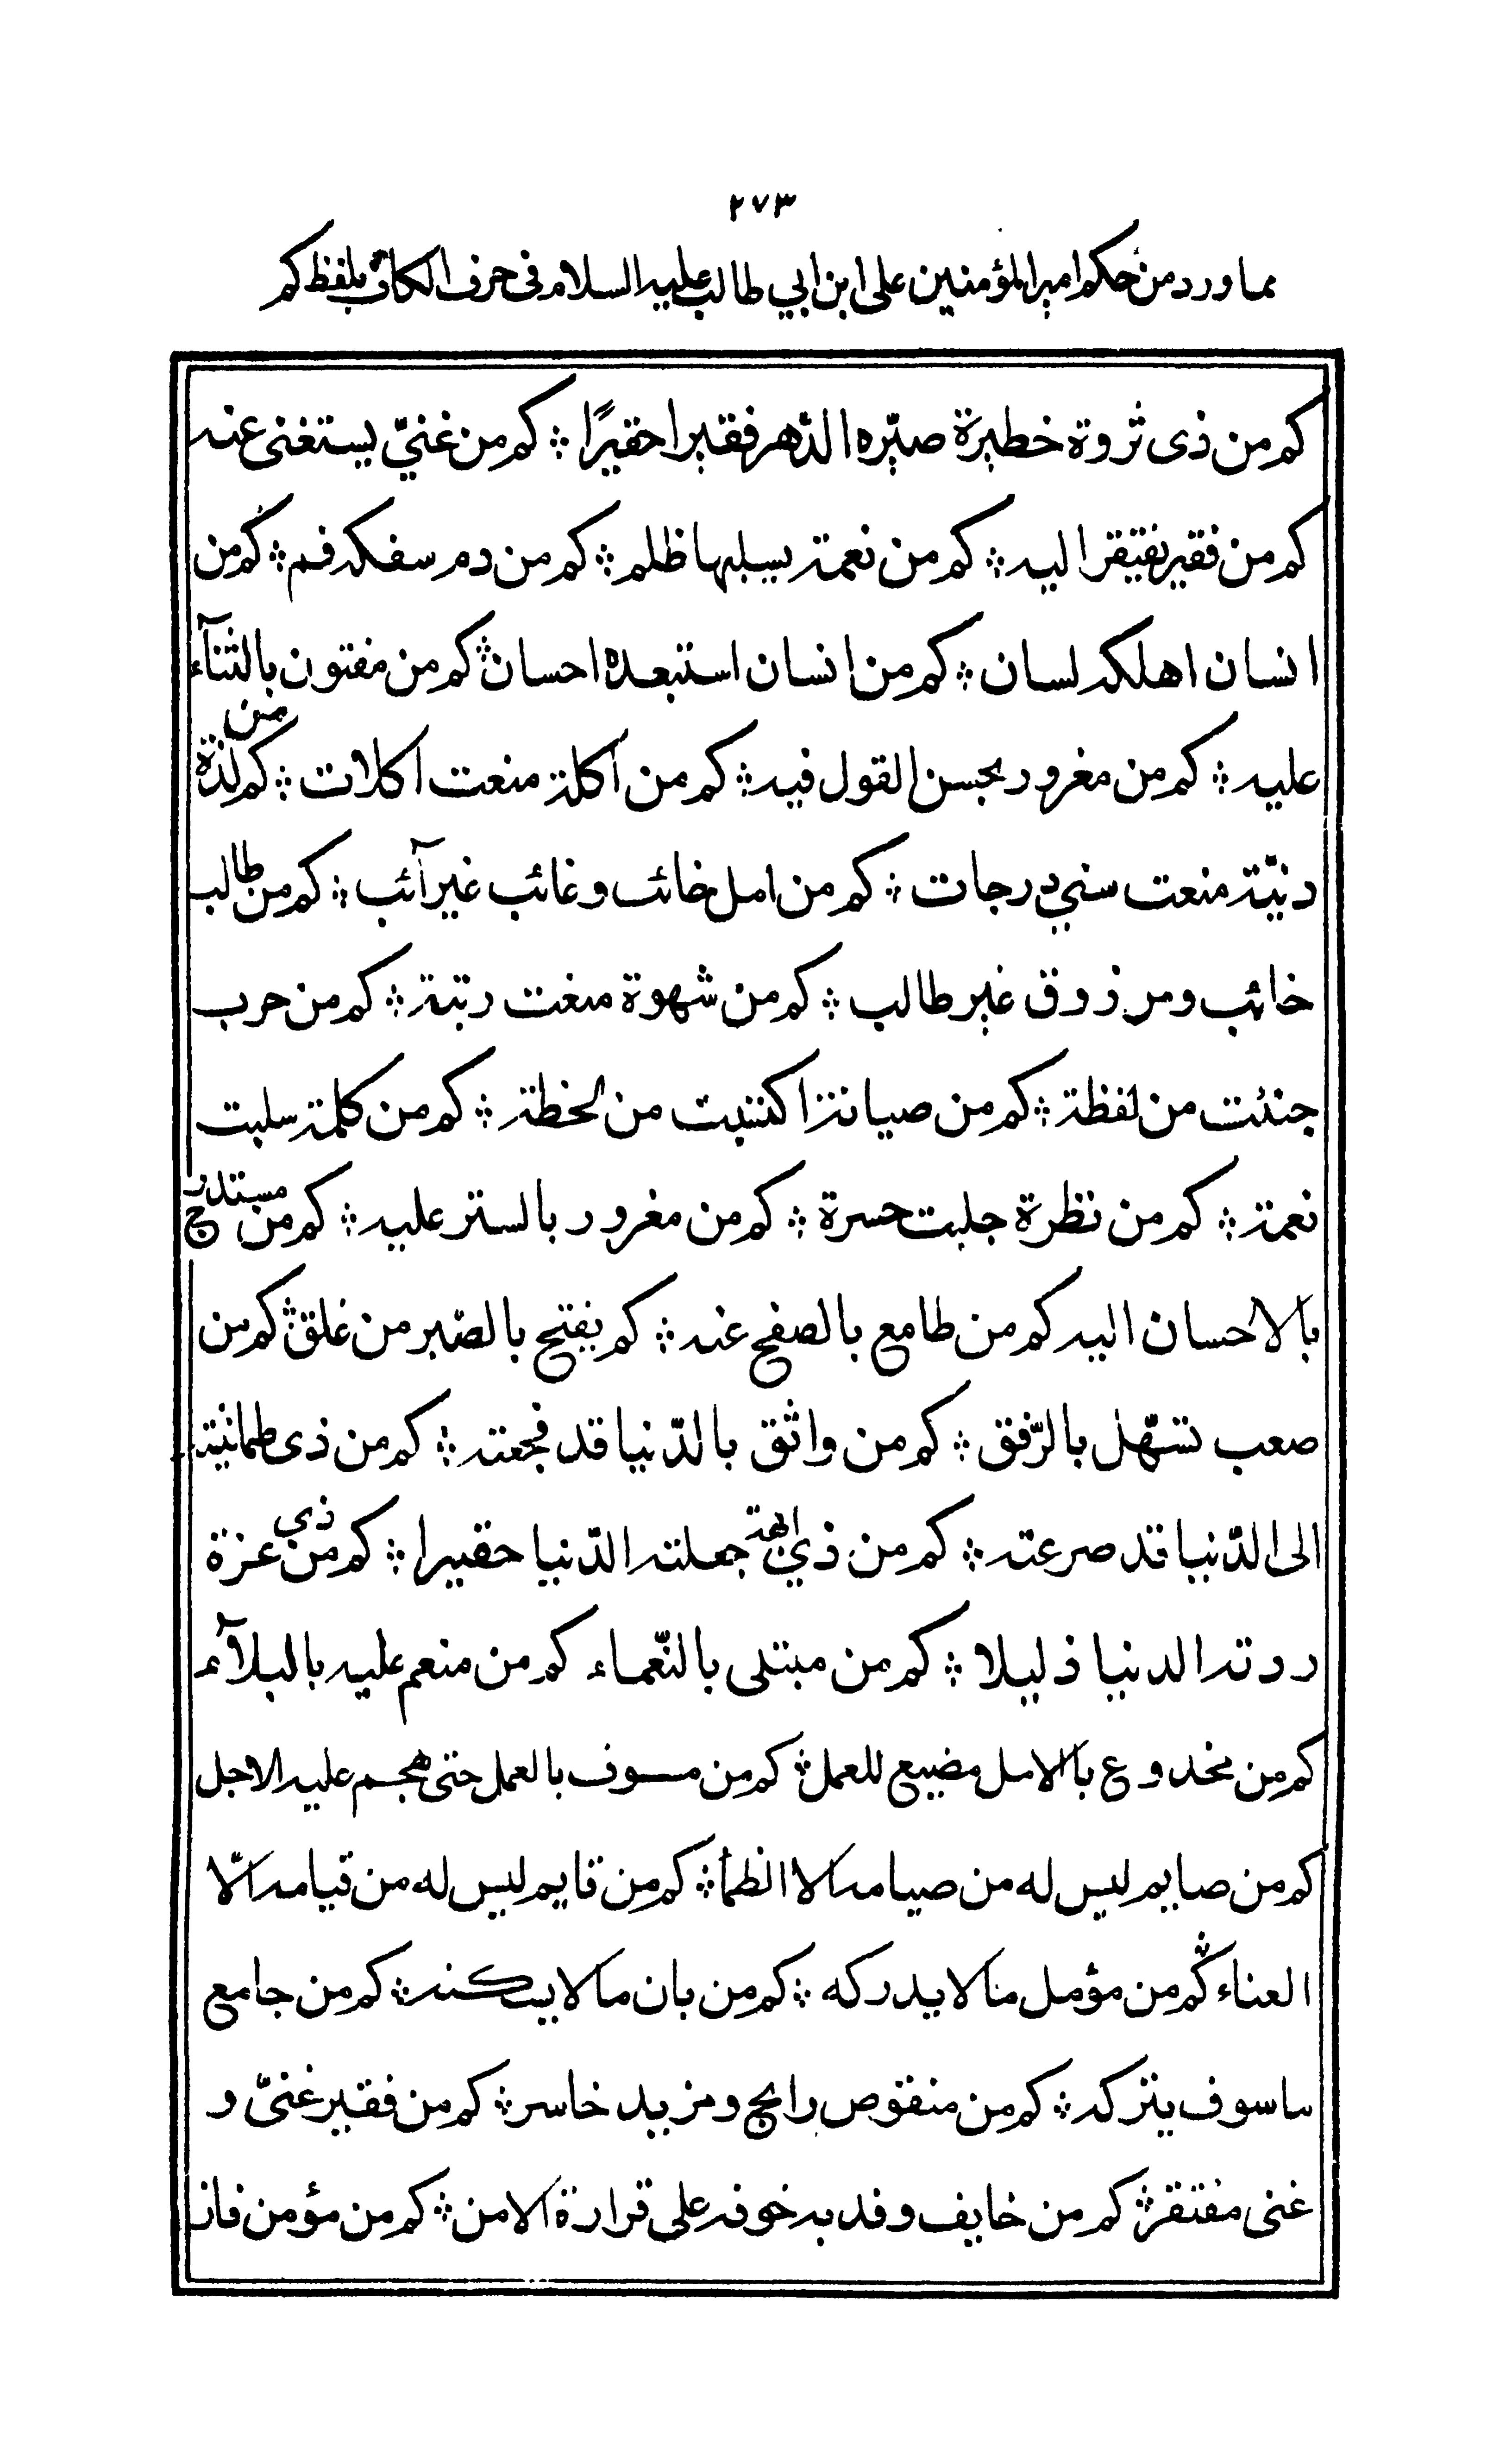 ٢٧٣
مما ورد من حكم امير المؤمنين على ابن ابي طالب عليه السلام فى حرف الكاف بلفظ كم
كم من ذى ثروة خطيرة صيّره الدّهر فقيرا حقيرًا ؞ كم من غنيّ يستغنى عنه
كم من فقير يفتقر اليه ؞ كم من نعمة يسلبها ظلم ؞ كم من دم سفكه فم ؞ كم من
انسان اهلكه لسان ؞ كم من انسان استبعده احسان ؞ كم من مفتون بالثنآء
عليه ؞ كم من مغرور بحسن القول فيه ؞ كم من اكلة منعت اكلات ؞ كم من لذة
دنيّة منعت سني درجات ؞ كم من امل خائب وغائب غير آئب ؞ كم من طالب
خائب ومرزوق غير طالب ؞ كم من شهوة منعت رتبة ؞ كم من حرب
جنئت من لفظة ؞ كم من صيانة اكتسبت من لحظة ؞ كم من كلمة سلبت
نعمة ؞ كم من نظرة جلبت حسرة ؞ كم من مغرور بالستر عليه ؞ كم من مستدرج
بالاحسان اليه كم من طامع بالصفح عنه ؞ كم يفتح بالصّبر من غلق ؞ كم من
صعب تسّهل بالرّفق ؞ كم من واثق بالدّنيا قد فجعته ؞ كم من ذى طمانيته
الى الدّنيا قد صرعته ؞ كم من ذي ابهة جعلته الدّنيا حقيرا ؞ كم من ذي عزة
ردته الدنيا ذليلا ؞ كم من مبتلى بالنّعماء كم من منعم عليه بالبلآء
كم من مخدوع بالامل مضيع للعمل ؞ كم من مسوف بالعمل حتى هجم عليه الاجل
كم من صايم ليس له من صيامه الا الظمأ ؞ كم من قايم ليس له من قيامه الّا
العناء ؞ كم من مؤمل ما لا يدركه ؞ كم من بان ما لا يسكنه ؞ كم من جامع
ما سوف يتركه ؞ كم من منقوص رابح ومزيد خاسر ؞ كم من فقير غنىّ و
غنى مفتقر ؞ كم من خايف وفد به خوفه على قرارة الامن ؞ كم من مؤمن فاز